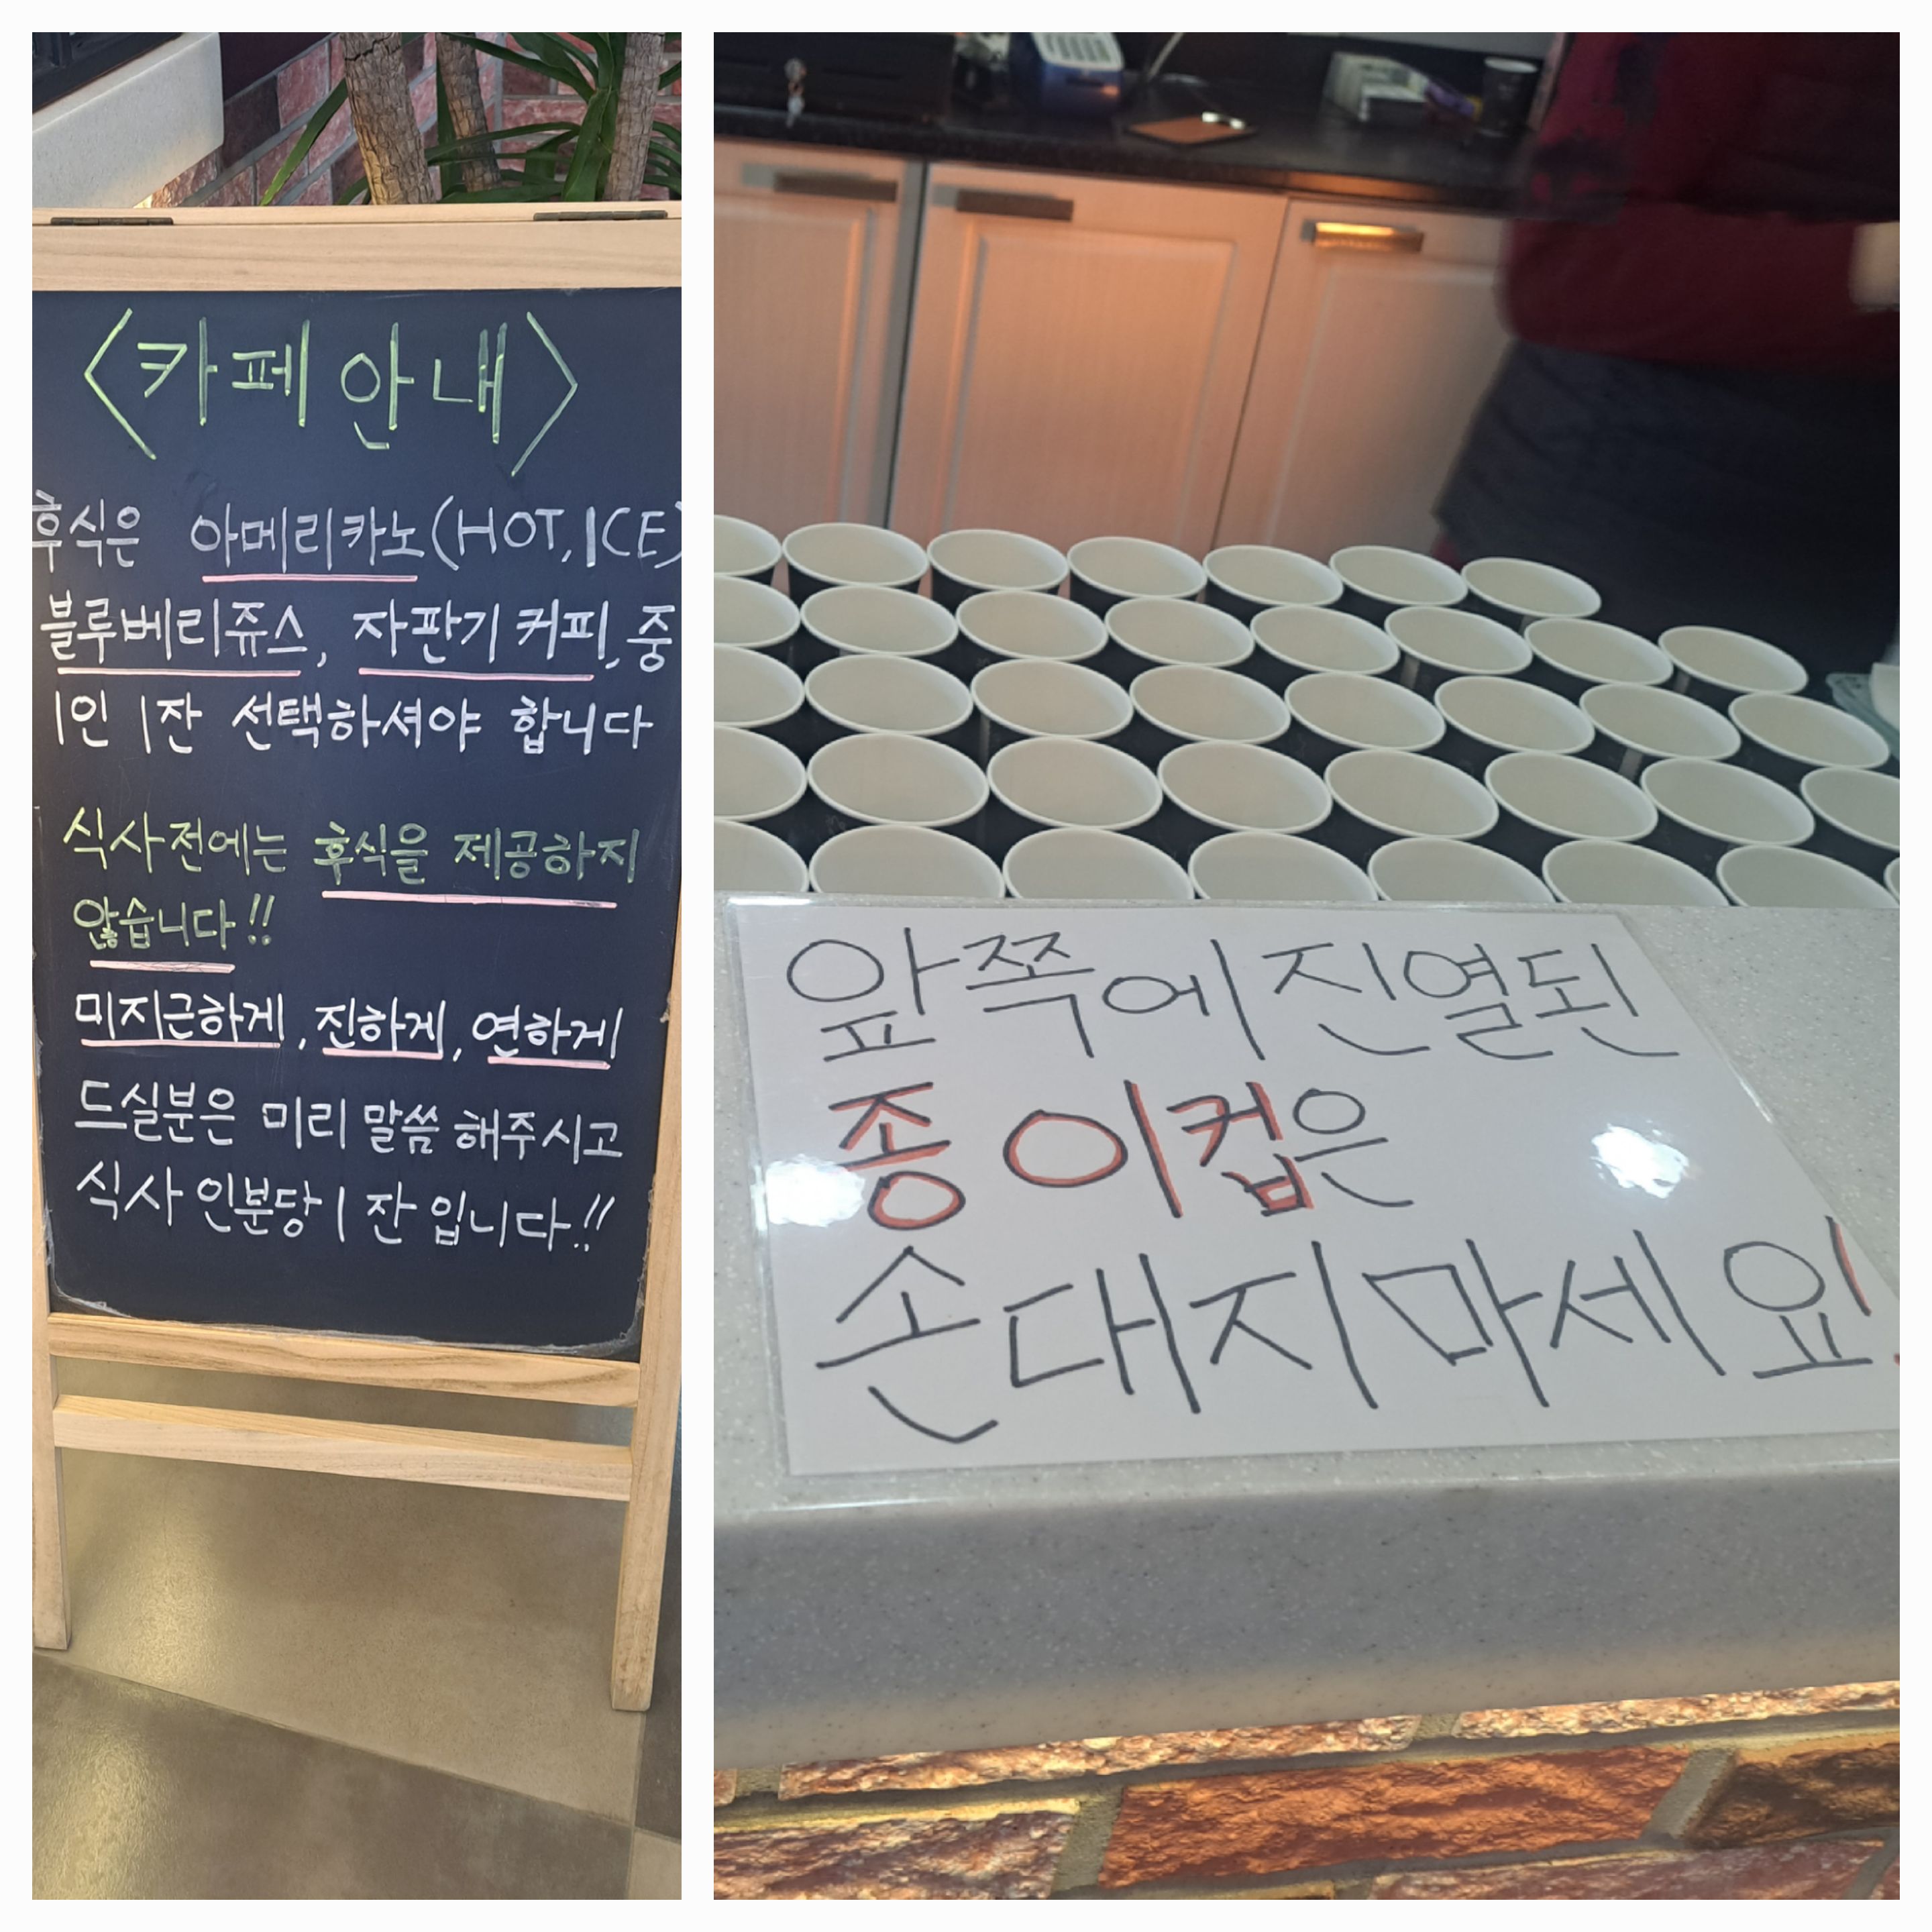 <카페 안내>
후식은 아메리카노(HOT, ICE)
블루베리쥬스, 자판기 커피, 중
1인 1잔 선택하셔야 합니다
식사전에는 후식을 제공하지
않습니다!!
미지근하게, 진하게, 연하게
드실분은 미리 말씀 해주시고
식사 인분당 1잔 입니다!!
앞쪽에 진열된
종이컵은
손대지마세요!